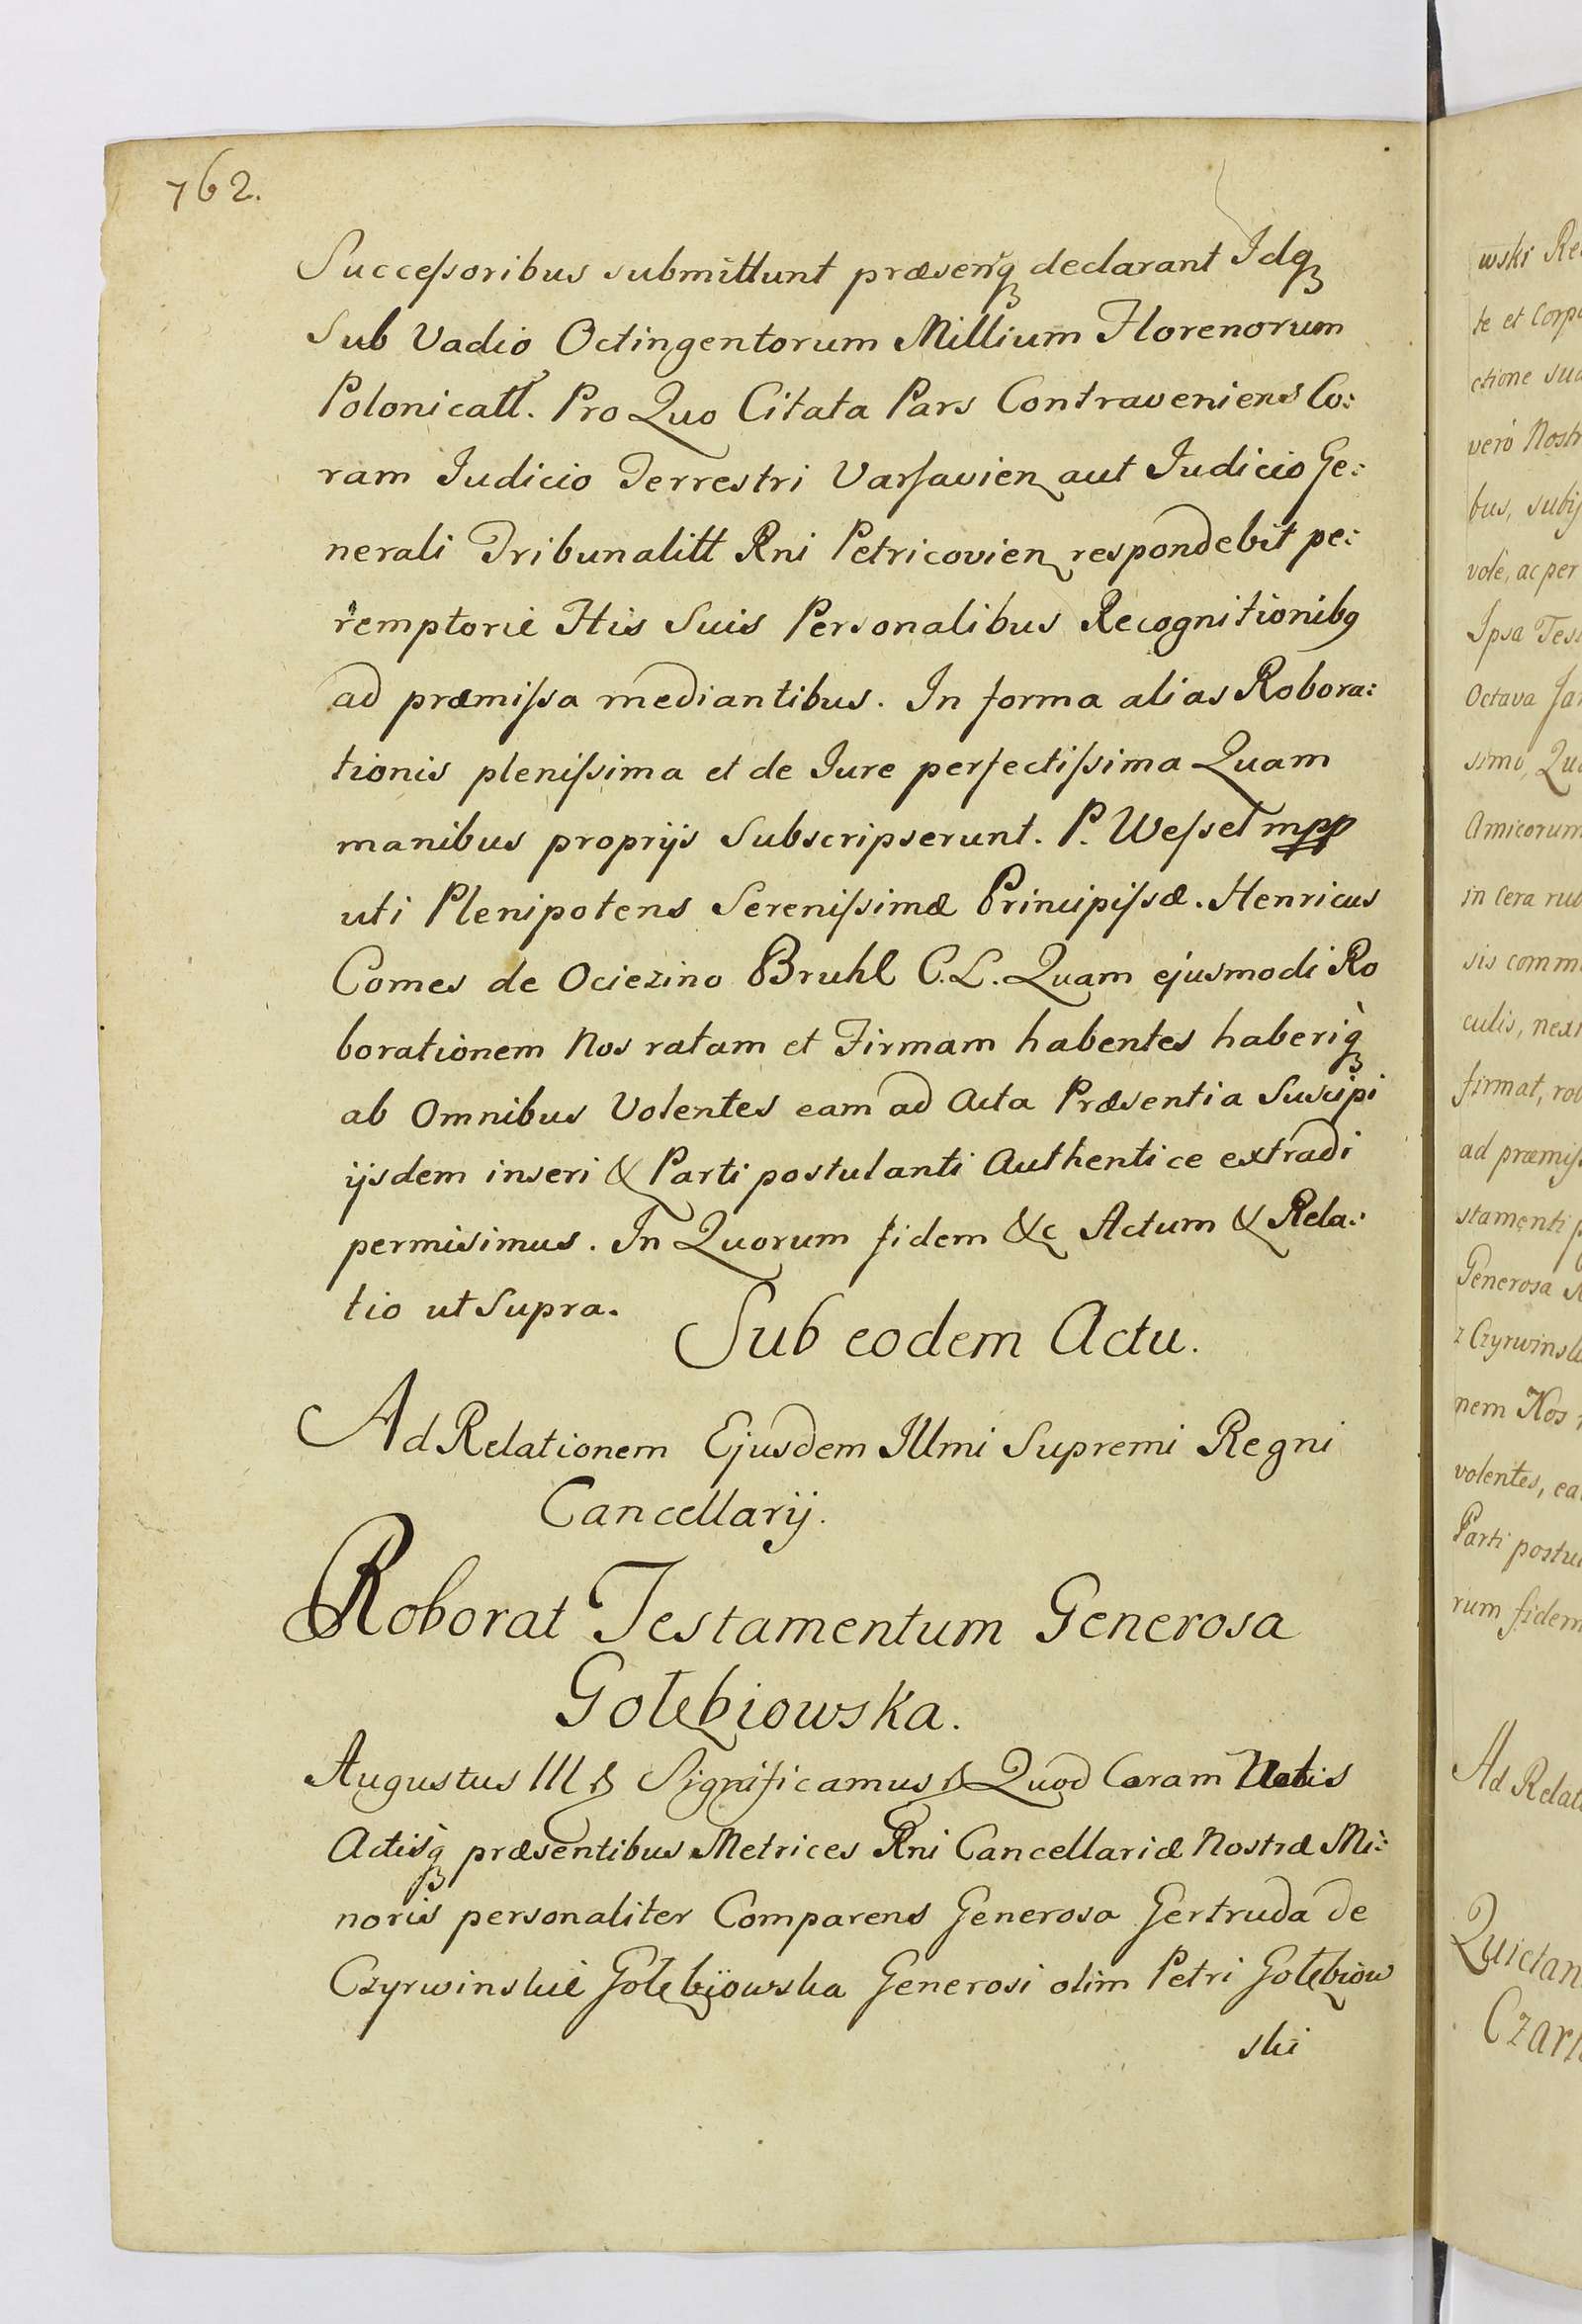 762.
Succeſsoribus submittunt præsenq́ʒ declarant Idqʒ
Sub Vadio Octingentorum Millium Florenorum
Polonicatt. Pro Quo Citata Pars Contraveniens Co:
ram Iudicio Terrestri Varſavien aut Iudicio Ge:
nerali Tribunalitt Rni Petricovien respondebit pe:
remptorie His Suis Personalibus Recognitionibꝯ
ad præmiſsa mediantibus. In forma alias Robora:
tionis pleniſsima et de Iure perfectiſsima Quam
manibus proprijs Subscripserunt. P. Weſsel mpp
uti Plenipotens Sereniſsimæ Principiſsæ. Henricus
Comes de Ociezino Bruhl C.L. Quam ejusmodi Ro
borationem Nos ratam et Firmam habentes haberiq̀ʒ
ab Omnibus Volentes eam ad Acta Præsentia Suscipi
ijsdem inseri & Parti postulanti Authentice extradi
permisimus. In Quorum fidem &c Actum & Rela:
tio ut Supra.
Sub eodem Actu.
Ad Relationem Ejusdem Illmi Supremi Regni
Cancellarij.
Roborat Testamentum Generosa
Gołębiowska.
Augustus III & Significamus & Quod Coram Nobis
Actisq̀ʒ præsentibus Metrices Rni Cancellariæ Nostræ Mi:
noris personaliter Comparens Generosa Gertruda de
Czyrwinskie Gołębiowska Generosi olim Petri Gołębiow
ski
wski
te et
ctione
vero
bus,
vole, ac per
Ipsa
Octava
simo,
Amicorum
in Cera
sis
culis,
firmat,
ad
stamenti
Generosa
z
nem Nos
volentes,
Parti
rum fidem
Ad